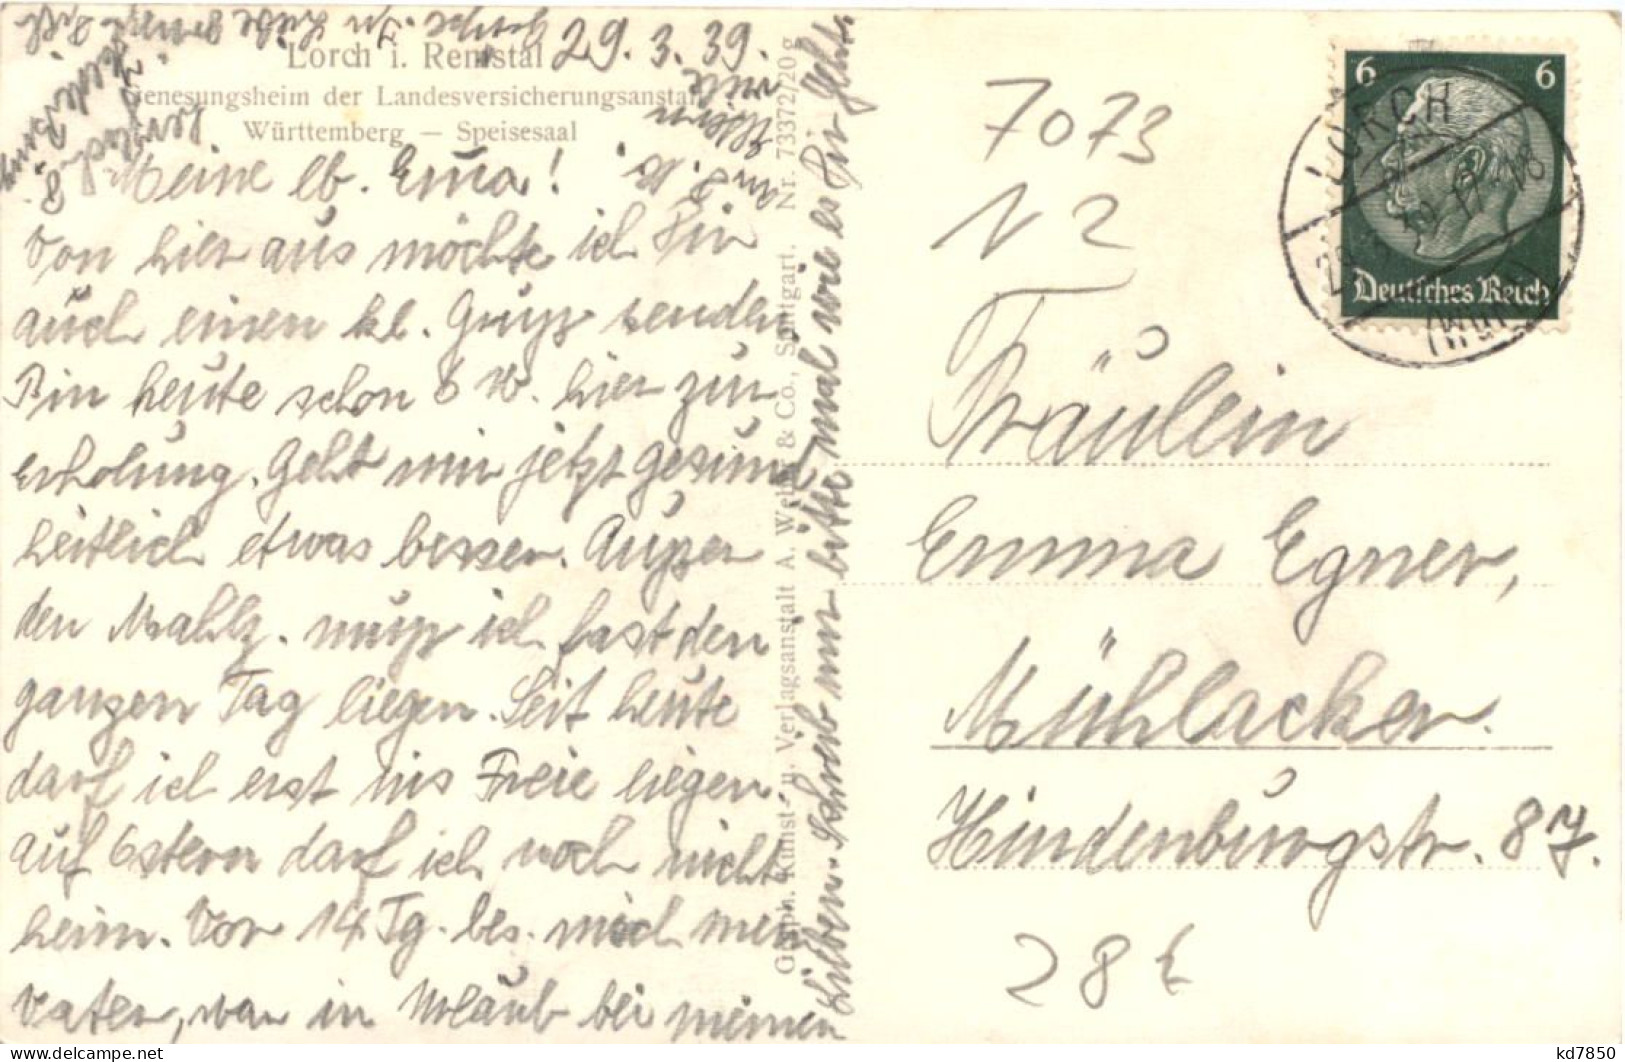 29. 3. 39.
Lorch i. Remstal
Genesungsheim der Landesversicherungsanstalt
Württemberg — Speisesaal
Meine lb. Emma!
Von hier aus möchte ich Dir
auch einen kl. Gruß senden
Bin heute schon 6 W. hier zur
Erholung. Geht mir jetzt gesund
heitlich etwas besser. Außer
den Mahlz. muß ich fast den
ganzen Tag liegen. Seit heute
darf ich erst ins Freie liegen.
auf Ostern darf ich noch nicht
heim. Vor 14 Tg. bes. mich mein
Vater, war in Urlaub bei meinen
Lieben. Schreib mir bitte mal wie es Dir geht.
Graph. Kunst- u. Verlagsanstalt A. & Co., Stuttgart. Nr. 73372/20 g
7073
N 2
6 6
Deutsches Reich
LORCH
Fräulein
Emma Egner,
Mühlacker.
Hindenburgstr. 87.
28 €
delcampe.net
kd7850